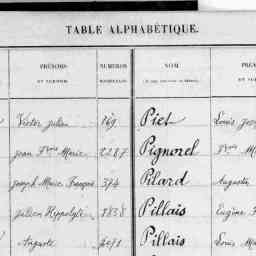 TABLE ALPHABÉTIQUE.
PRÉNOMS NUMÉROS NOM PRÉ
ET SURNOM MATRICULES ET SUR
Victor Julien 169 Piet Louis Jos
Jean Fçois Marie 2287 Pignorel Fçois Ma
Joseph Marie François 374 Pilard Auguste
Julien Hippolyte 1838 Pillais Eugène F
Auguste 2071 Pillais Louis Ma